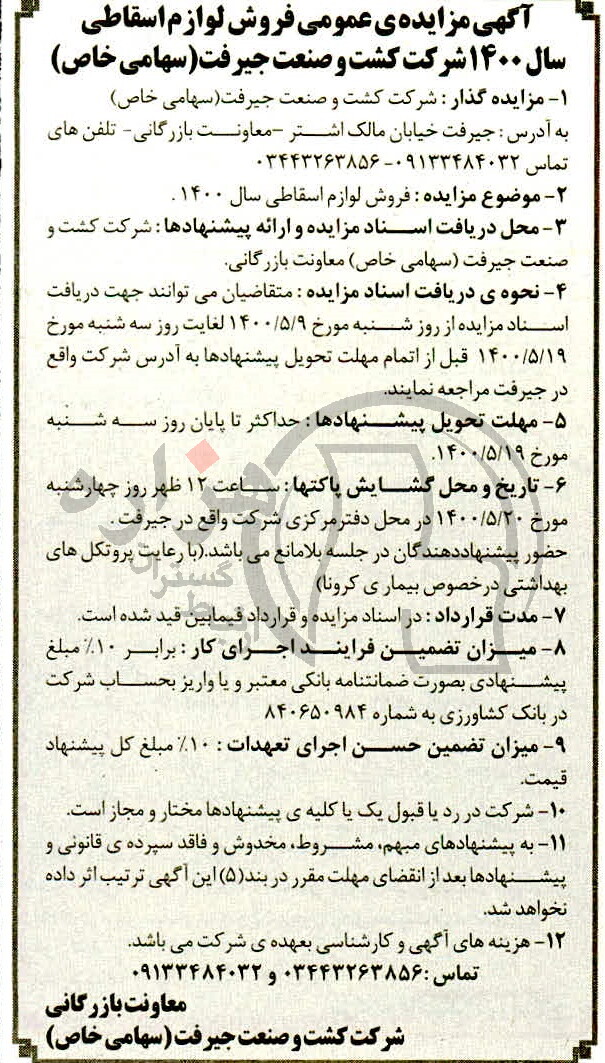 آگهی مزایده ی عمومی فروش لوازم اسقاطی
سال ۱۴۰۰ شرکت کشت و صنعت جیرفت (سهامی خاص)
۱- مزایده گذار : شرکت کشت و صنعت جیرفت(سهامی خاص)
به آدرس : جیرفت خیابان مالک اشتر –معاونت بازرگانی- تلفن های
تماس ۰۹۱۳۳۴۸۴۰۳۲-۰۳۴۴۳۲۶۳۸۵۶
۲- موضوع مزایده : فروش لوازم اسقاطی سال ۱۴۰۰ .
۳- محل دریافت اسناد مزایده و ارائه پیشنهادها : شرکت کشت و
صنعت جیرفت (سهامی خاص) معاونت بازرگانی.
۴- نحوه ی دریافت اسناد مزایده : متقاضیان می توانند جهت دریافت
اسناد مزایده از روز شنبه مورخ ۱۴۰۰/۵/۹ لغایت روز سه شنبه مورخ
۱۴۰۰/۵/۱۹ قبل از اتمام مهلت تحویل پیشنهادها به آدرس شرکت واقع
در جیرفت مراجعه نمایند.
۵- مهلت تحویل پیشنهادها : حداکثر تا پایان روز سه شنبه
مورخ ۱۴۰۰/۵/۱۹.
۶- تاریخ و محل گشایش پاکتها : ساعت ۱۲ ظهر روز چهارشنبه
مورخ ۱۴۰۰/۵/۲۰ در محل دفتر مرکزی شرکت واقع در جیرفت .
حضور پیشنهاددهندگان در جلسه بلامانع می باشد.(با رعایت پروتکل های
بهداشتی درخصوص بیماری کرونا)
۷- مدت قرارداد : در اسناد مزایده و قرارداد فیمابین قید شده است.
۸- میزان تضمین فرایند اجرای کار : برابر ۱۰٪ مبلغ
پیشنهادی بصورت ضمانتنامه بانکی معتبر و یا واریز بحساب شرکت
در بانک کشاورزی به شماره ۸۴۰۶۵۰۹۸۴
۹- میزان تضمین حسن اجرای تعهدات : ۱۰٪ مبلغ کل پیشنهاد
قیمت.
۱۰- شرکت در رد یا قبول یک یا کلیه ی پیشنهادها مختار و مجاز است.
۱۱- به پیشنهادهای مبهم، مشروط، مخدوش و فاقد سپرده ی قانونی و
پیشنهادها بعد از انقضای مهلت مقرر در بند(۵) این آگهی ترتیب اثر داده
نخواهد شد.
۱۲- هزینه های آگهی و کارشناسی بعهده ی شرکت می باشد.
تماس :۰۳۴۴۳۲۶۳۸۵۶ و ۰۹۱۳۳۴۸۴۰۳۲
معاونت بازرگانی
شرکت کشت و صنعت جیرفت (سهامی خاص)
هزاره
گستران